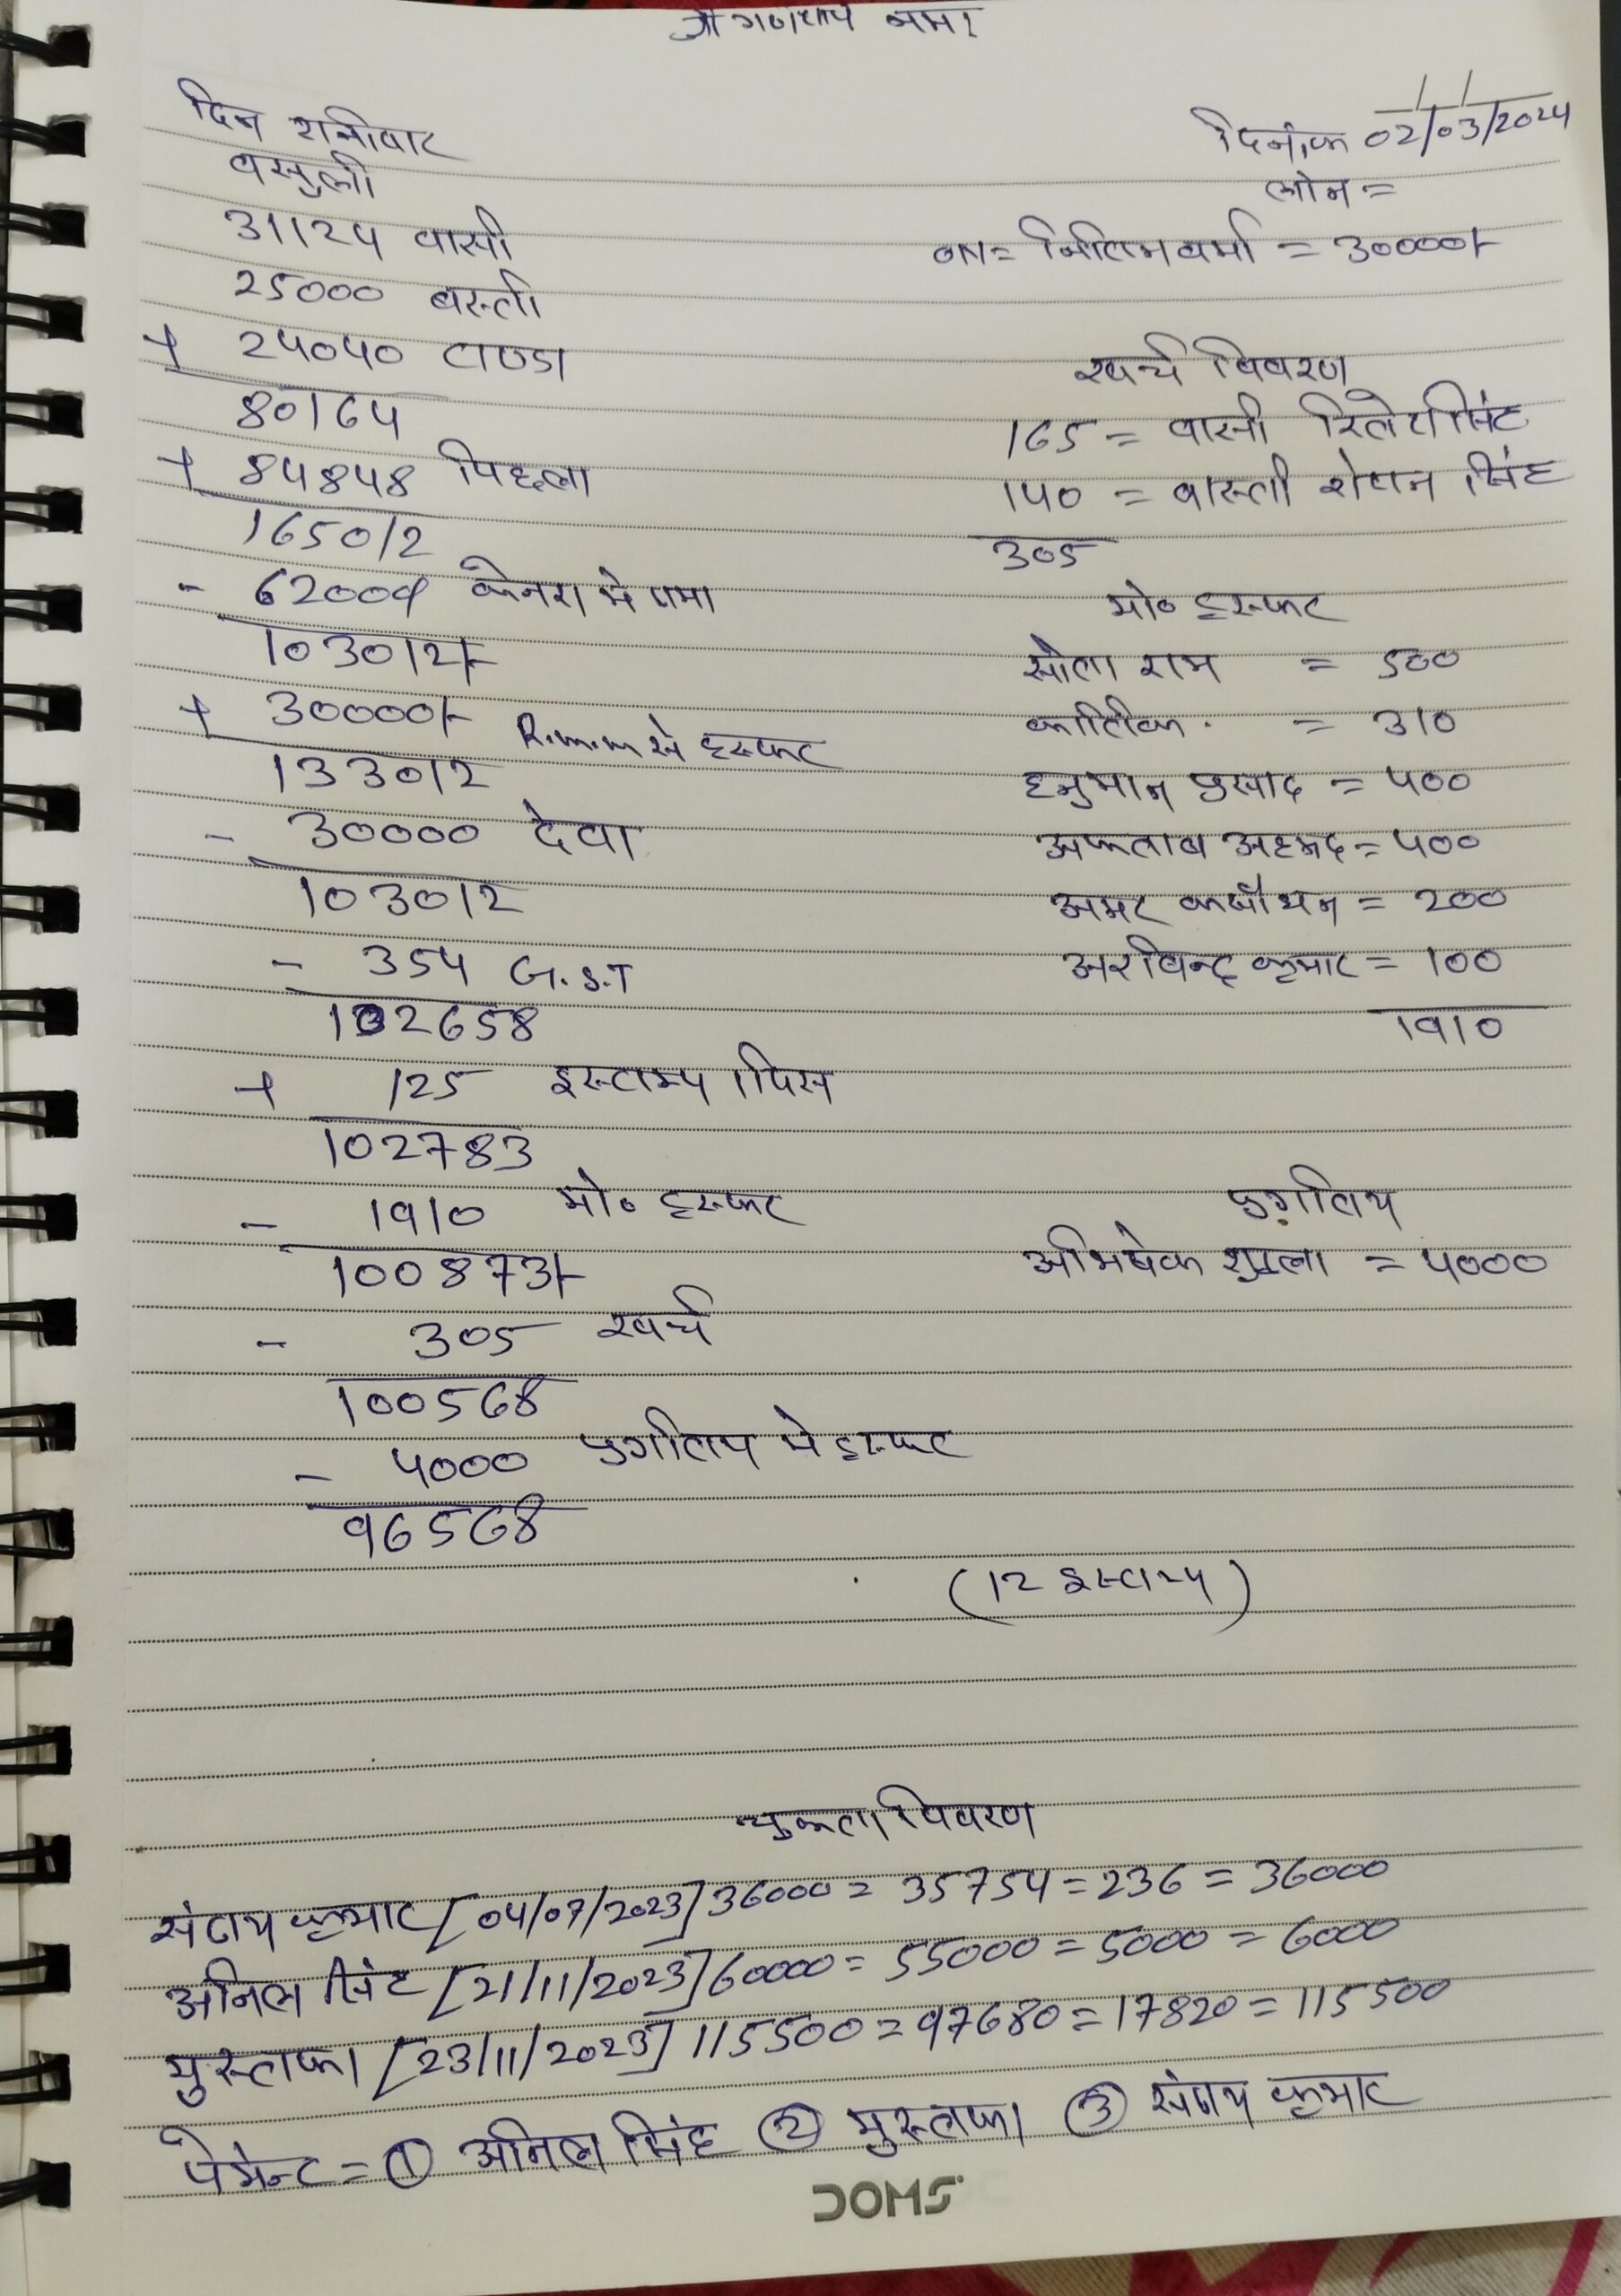 श्री गणेशाय नमः
दिन शनीवार
दिनांक 02/03/2024
वसुली
लोन =
31124 वासी
ON = नितिन वर्मा = 30000/-
25000 बस्ती
+ 24040 टाण्डा
खर्च विवरण
80164
165 = वासी
+ 84848 पिछला
140 = बास्ती रोशन सिंह
165012
305
- 62000 केनरा मे जमा
मो० ट्रास्फर
103012/-
सीता राम = 500
+ 30000/- R.m.m से ट्रास्फर
कार्तिक = 310
133012
हनुमान प्रसाद = 400
- 30000 देवा
अफताब अहमद = 400
103012
अमर कसौधन = 200
- 354 G.S.T
अरविन्द कुमार = 100
102658
1910
+ 125 इस्टाम्प 1 पिस
102783
- 1910 मो० ट्रास्फर
प्रगतिय
100873/-
अभिषेक शुक्ला = 4000
- 305 खर्च
100568
- 4000 प्रगतिय मे ट्रास्फर
96568
(12 इस्टाम्प)
चुकता विवरण
संजय कुमार [04/07/2023] 36000 = 35754 = 236 = 36000
अनिल सिंह [21/11/2023] 60000 = 55000 = 5000 = 6000
मुस्तफा [23/11/2023] 115500 = 97680 = 17820 = 115500
पेमेन्ट = ① अनिल सिंह ② मुस्तफा ③ संजय कुमार
DOMS